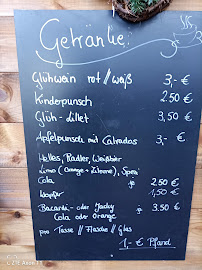 Getränke:
Glühwein rot // weiß 3,- €
Kinderpunsch 2.50 €
Glüh-Lillet 3,50 €
Apfelpunsch mit Calvados 3,- €
Helles, Radler, Weißbier
Limo (Orange + Zitrone), Spezi
Cola 2.50 €
Wasser 1,50 €
Bacardi - oder Jacky 3.50 €
Cola oder Orange
pro Tasse // Flasche // Glas
1,- € Pfand